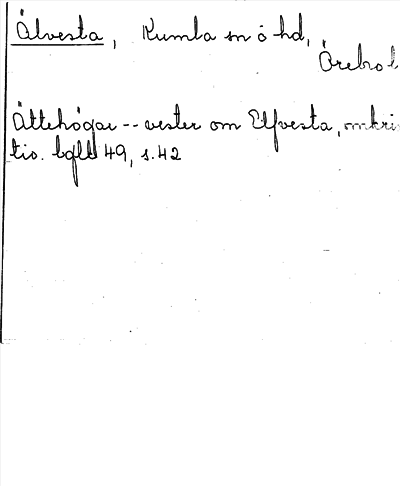 Älvesta, Kumla sn o hd,
Örebro l
Ättehögar -- vester om Elfvesta, omkri
tio. bqll 49, s. 42